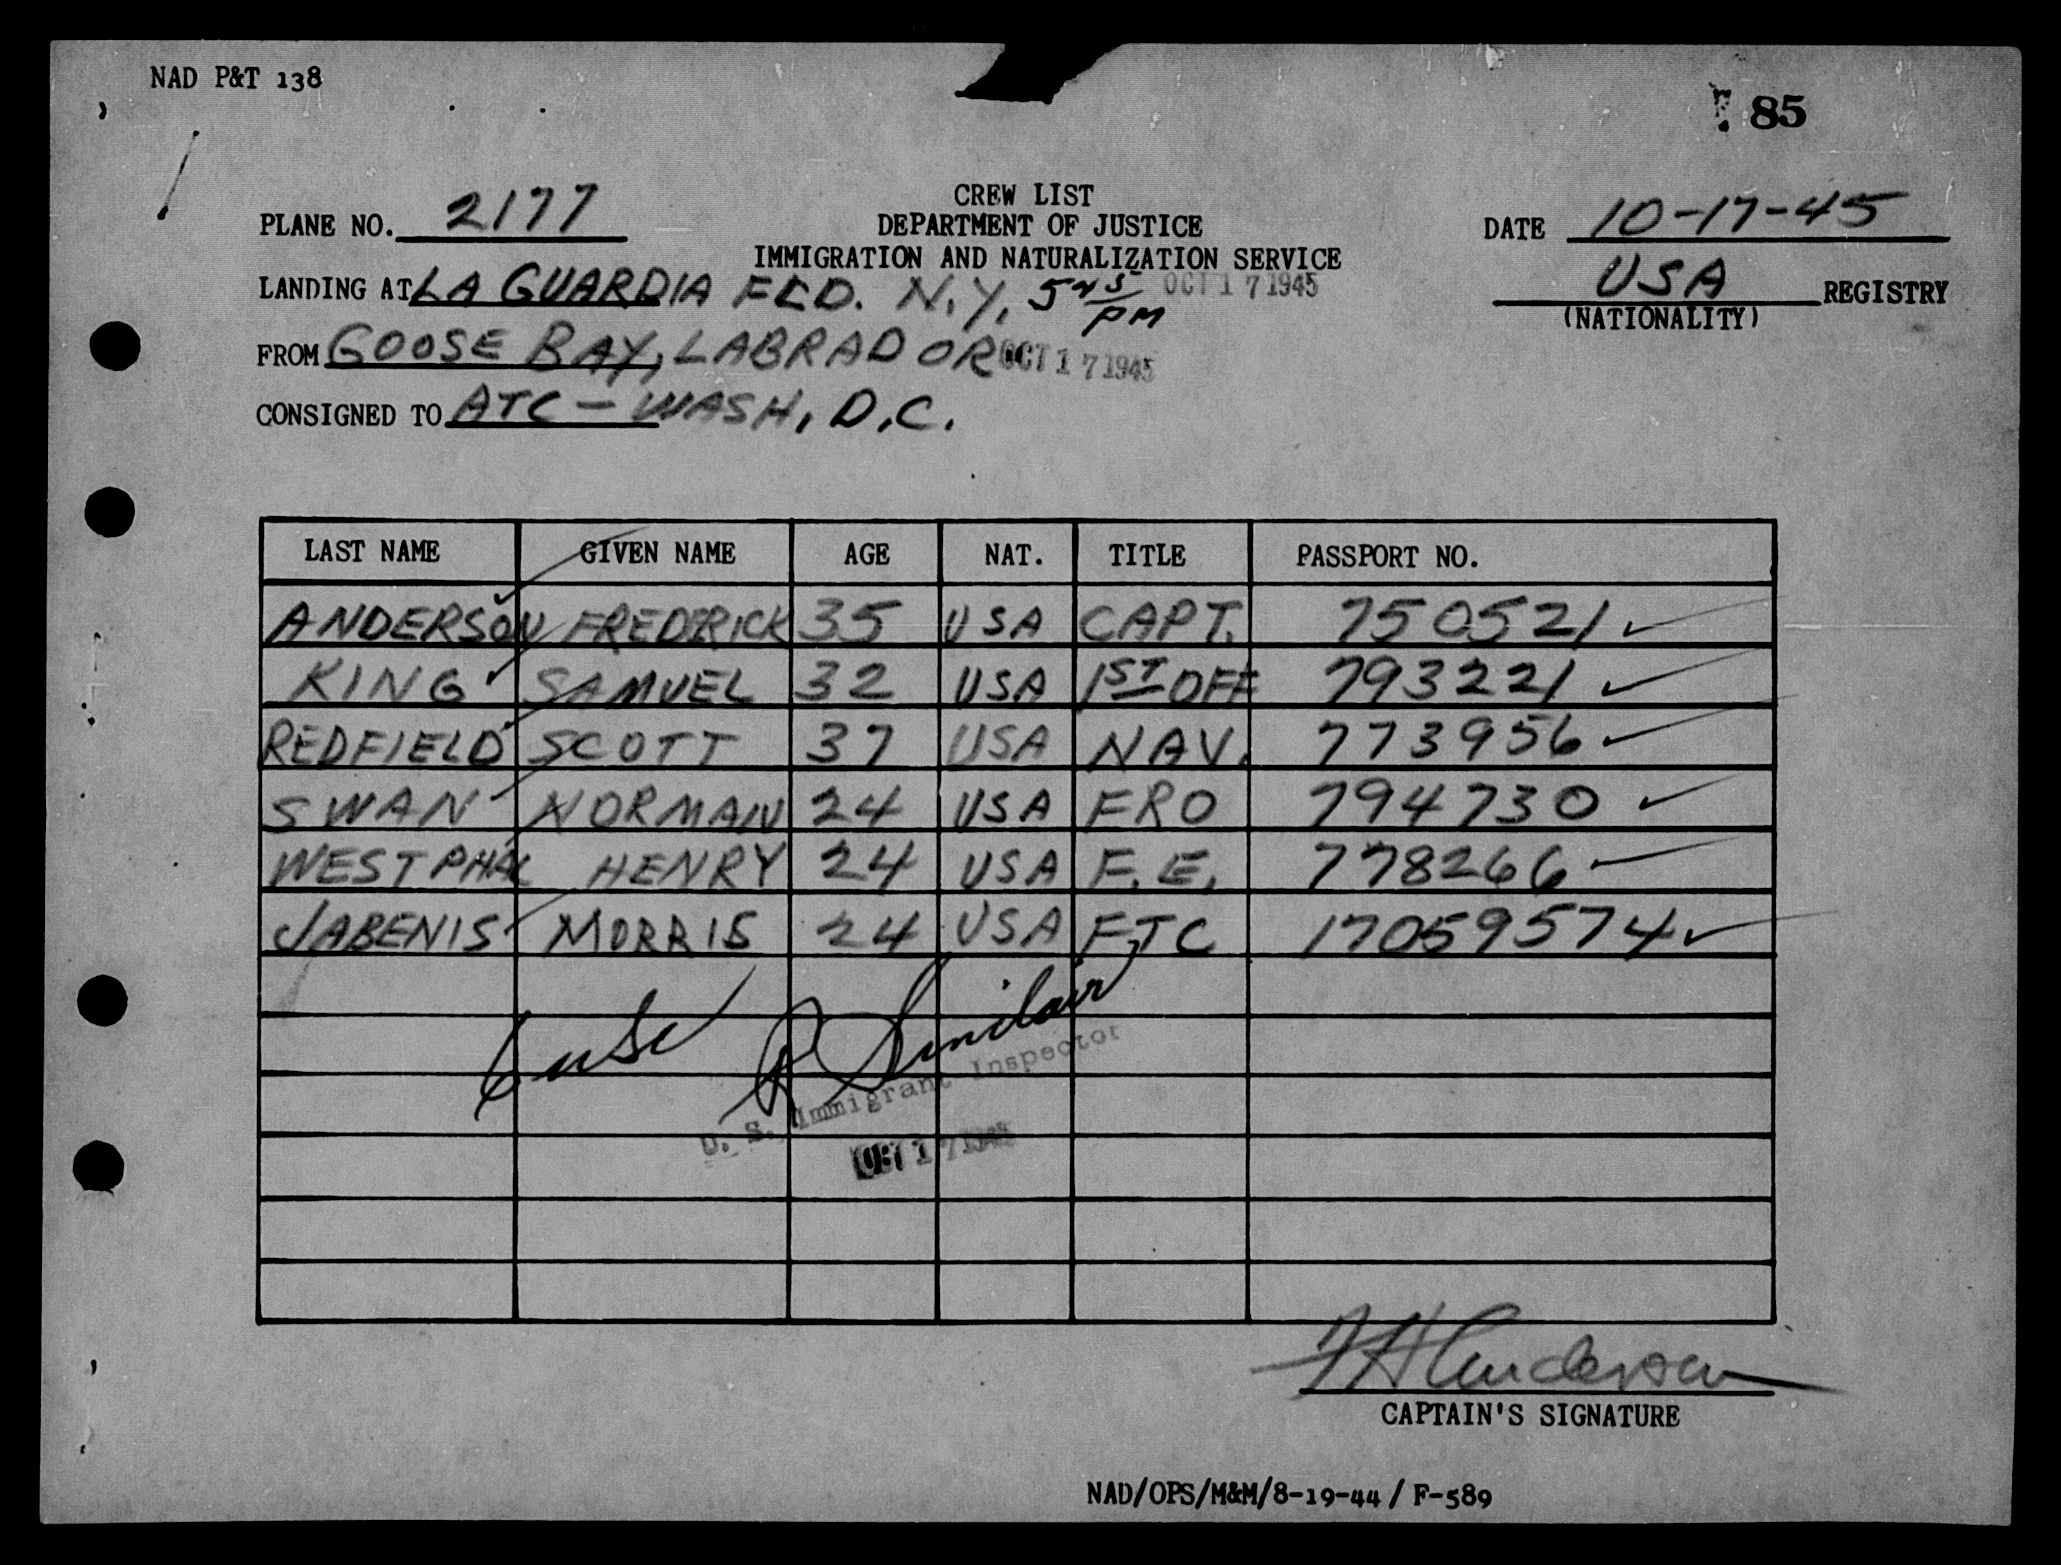 NAD P&T 138
85
CREW LIST
PLANE NO. 2177 DEPARTMENT OF JUSTICE DATE 10-17-45
IMMIGRATION AND NATURALIZATION SERVICE
LANDING AT LA GUARDIA FLD. N.Y. PM OCT 17 1945 USA REGISTRY
(NATIONALITY)
FROM GOOSE BAY, LABRADOR OCT 17 1945
CONSIGNED TO ATC - WASH, D.C.
LAST NAME GIVEN NAME AGE NAT. TITLE PASSPORT NO.
ANDERSON FREDERICK 35 USA CAPT. 750521
KING SAMUEL 32 USA 1ST OFF 793221
REDFIELD SCOTT 37 USA NAV. 773956
SWAN NORMAN 24 USA FRO 794730
WESTPHAL HENRY 24 USA F.E. 778266
JABENIS MORRIS 24 USA FTC 17059574
6 R Sinclair
U. S. Immigrant Inspector
OCT 17 1945
F H Anderson
CAPTAIN'S SIGNATURE
NAD/OPS/M&M/8-19-44 / F-589